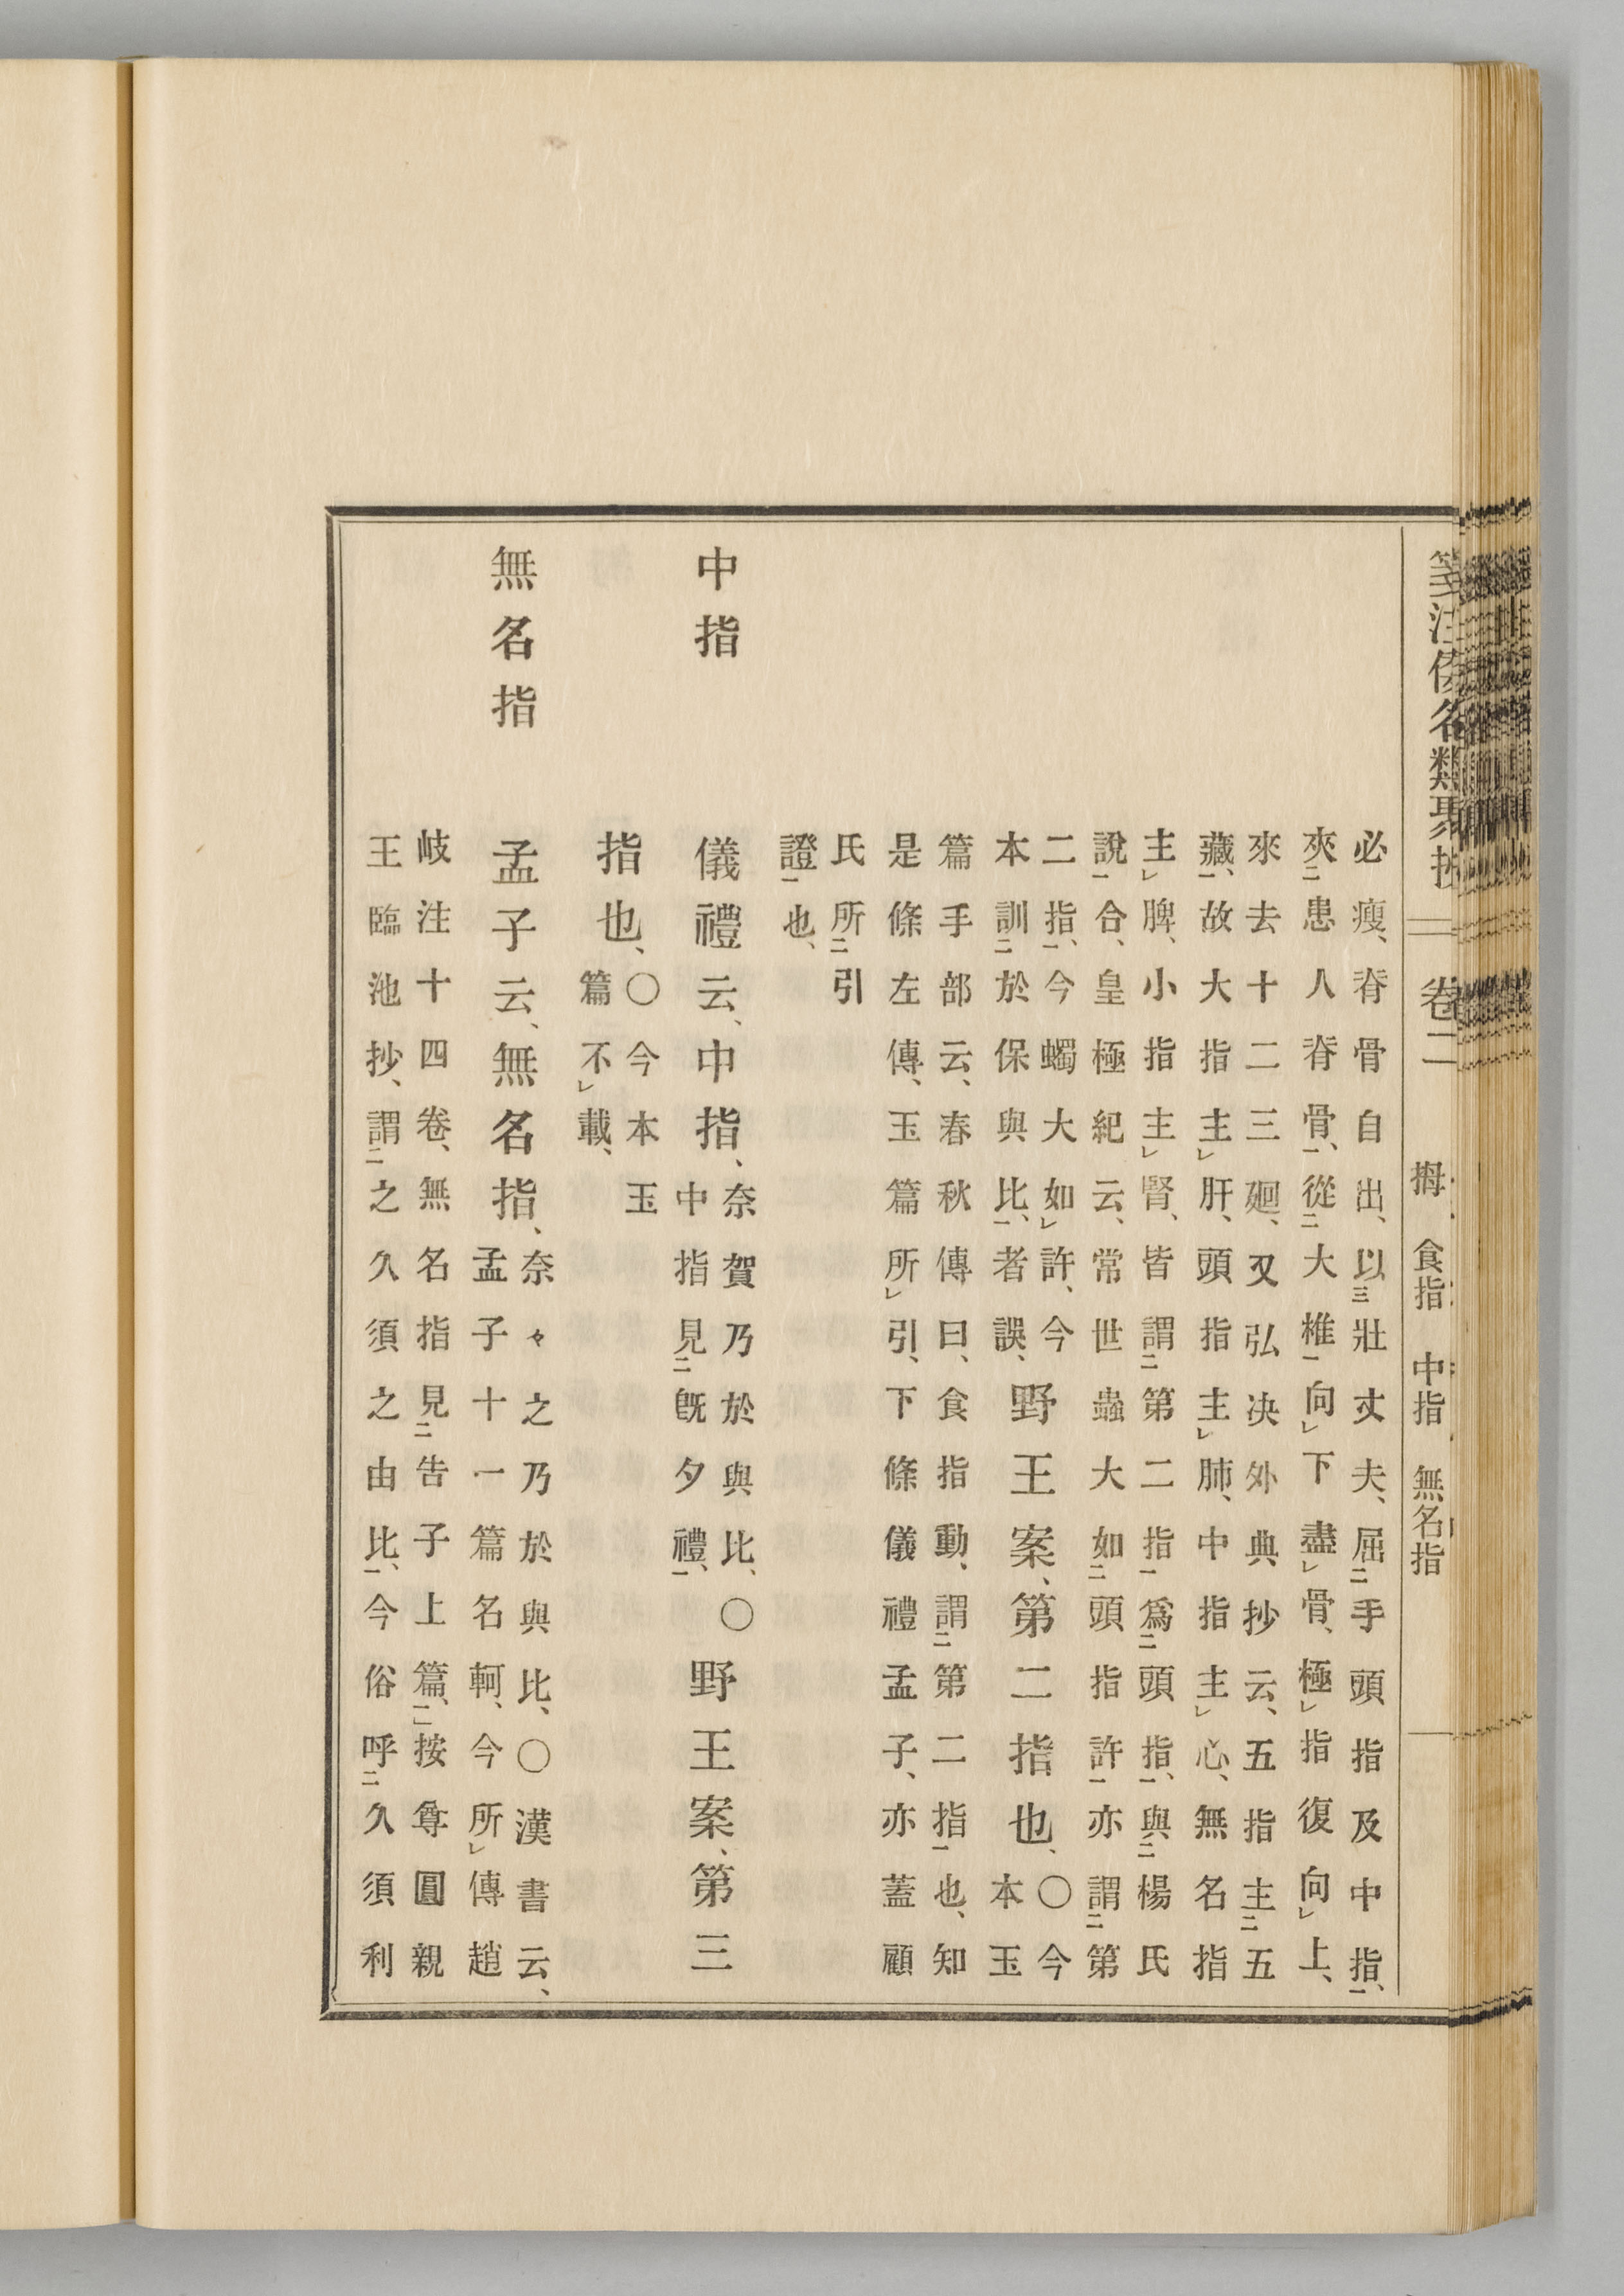 箋注倭名類聚抄 卷二 拇 食指 中指 無名指
必瘦、脊骨自出、以三壯丈夫、屈二手頭指及中指一、
夾二患人脊骨一、從二大椎一向レ下盡レ骨、極レ指復向レ上、
來去十二三廻、又弘决外典抄云、五指主二五
藏一、故大指主レ肝、頭指主レ肺、中指主レ心、無名指
主レ脾、小指主レ腎、皆謂二第二指一爲二頭指一、與二楊氏
說一合、皇極紀云、常世蟲大如二頭指許一亦謂二第
二指一、今蠋大如レ許、今
本訓二於保與比一、者誤、
野王案、第二指也、
〇今
本玉
篇手部云、春秋傳曰、食指動、謂二第二指一也、知
是條左傳、玉篇所レ引、下條儀禮孟子、亦蓋顧
氏所二引
證一也、
中指
儀禮云、中指、
奈賀乃於與比、〇
中指見二旣夕禮一、
野王案、第三
指也、
〇今本玉
篇不レ載、
無名指
孟子云、無名指、
奈々之乃於與比、〇漢書云、
孟子十一篇名軻、今所レ傳趙
岐注十四卷、無名指見二告子上篇一、按尊圓親
王臨池抄、謂二之久須之由比一、今俗呼二久須利